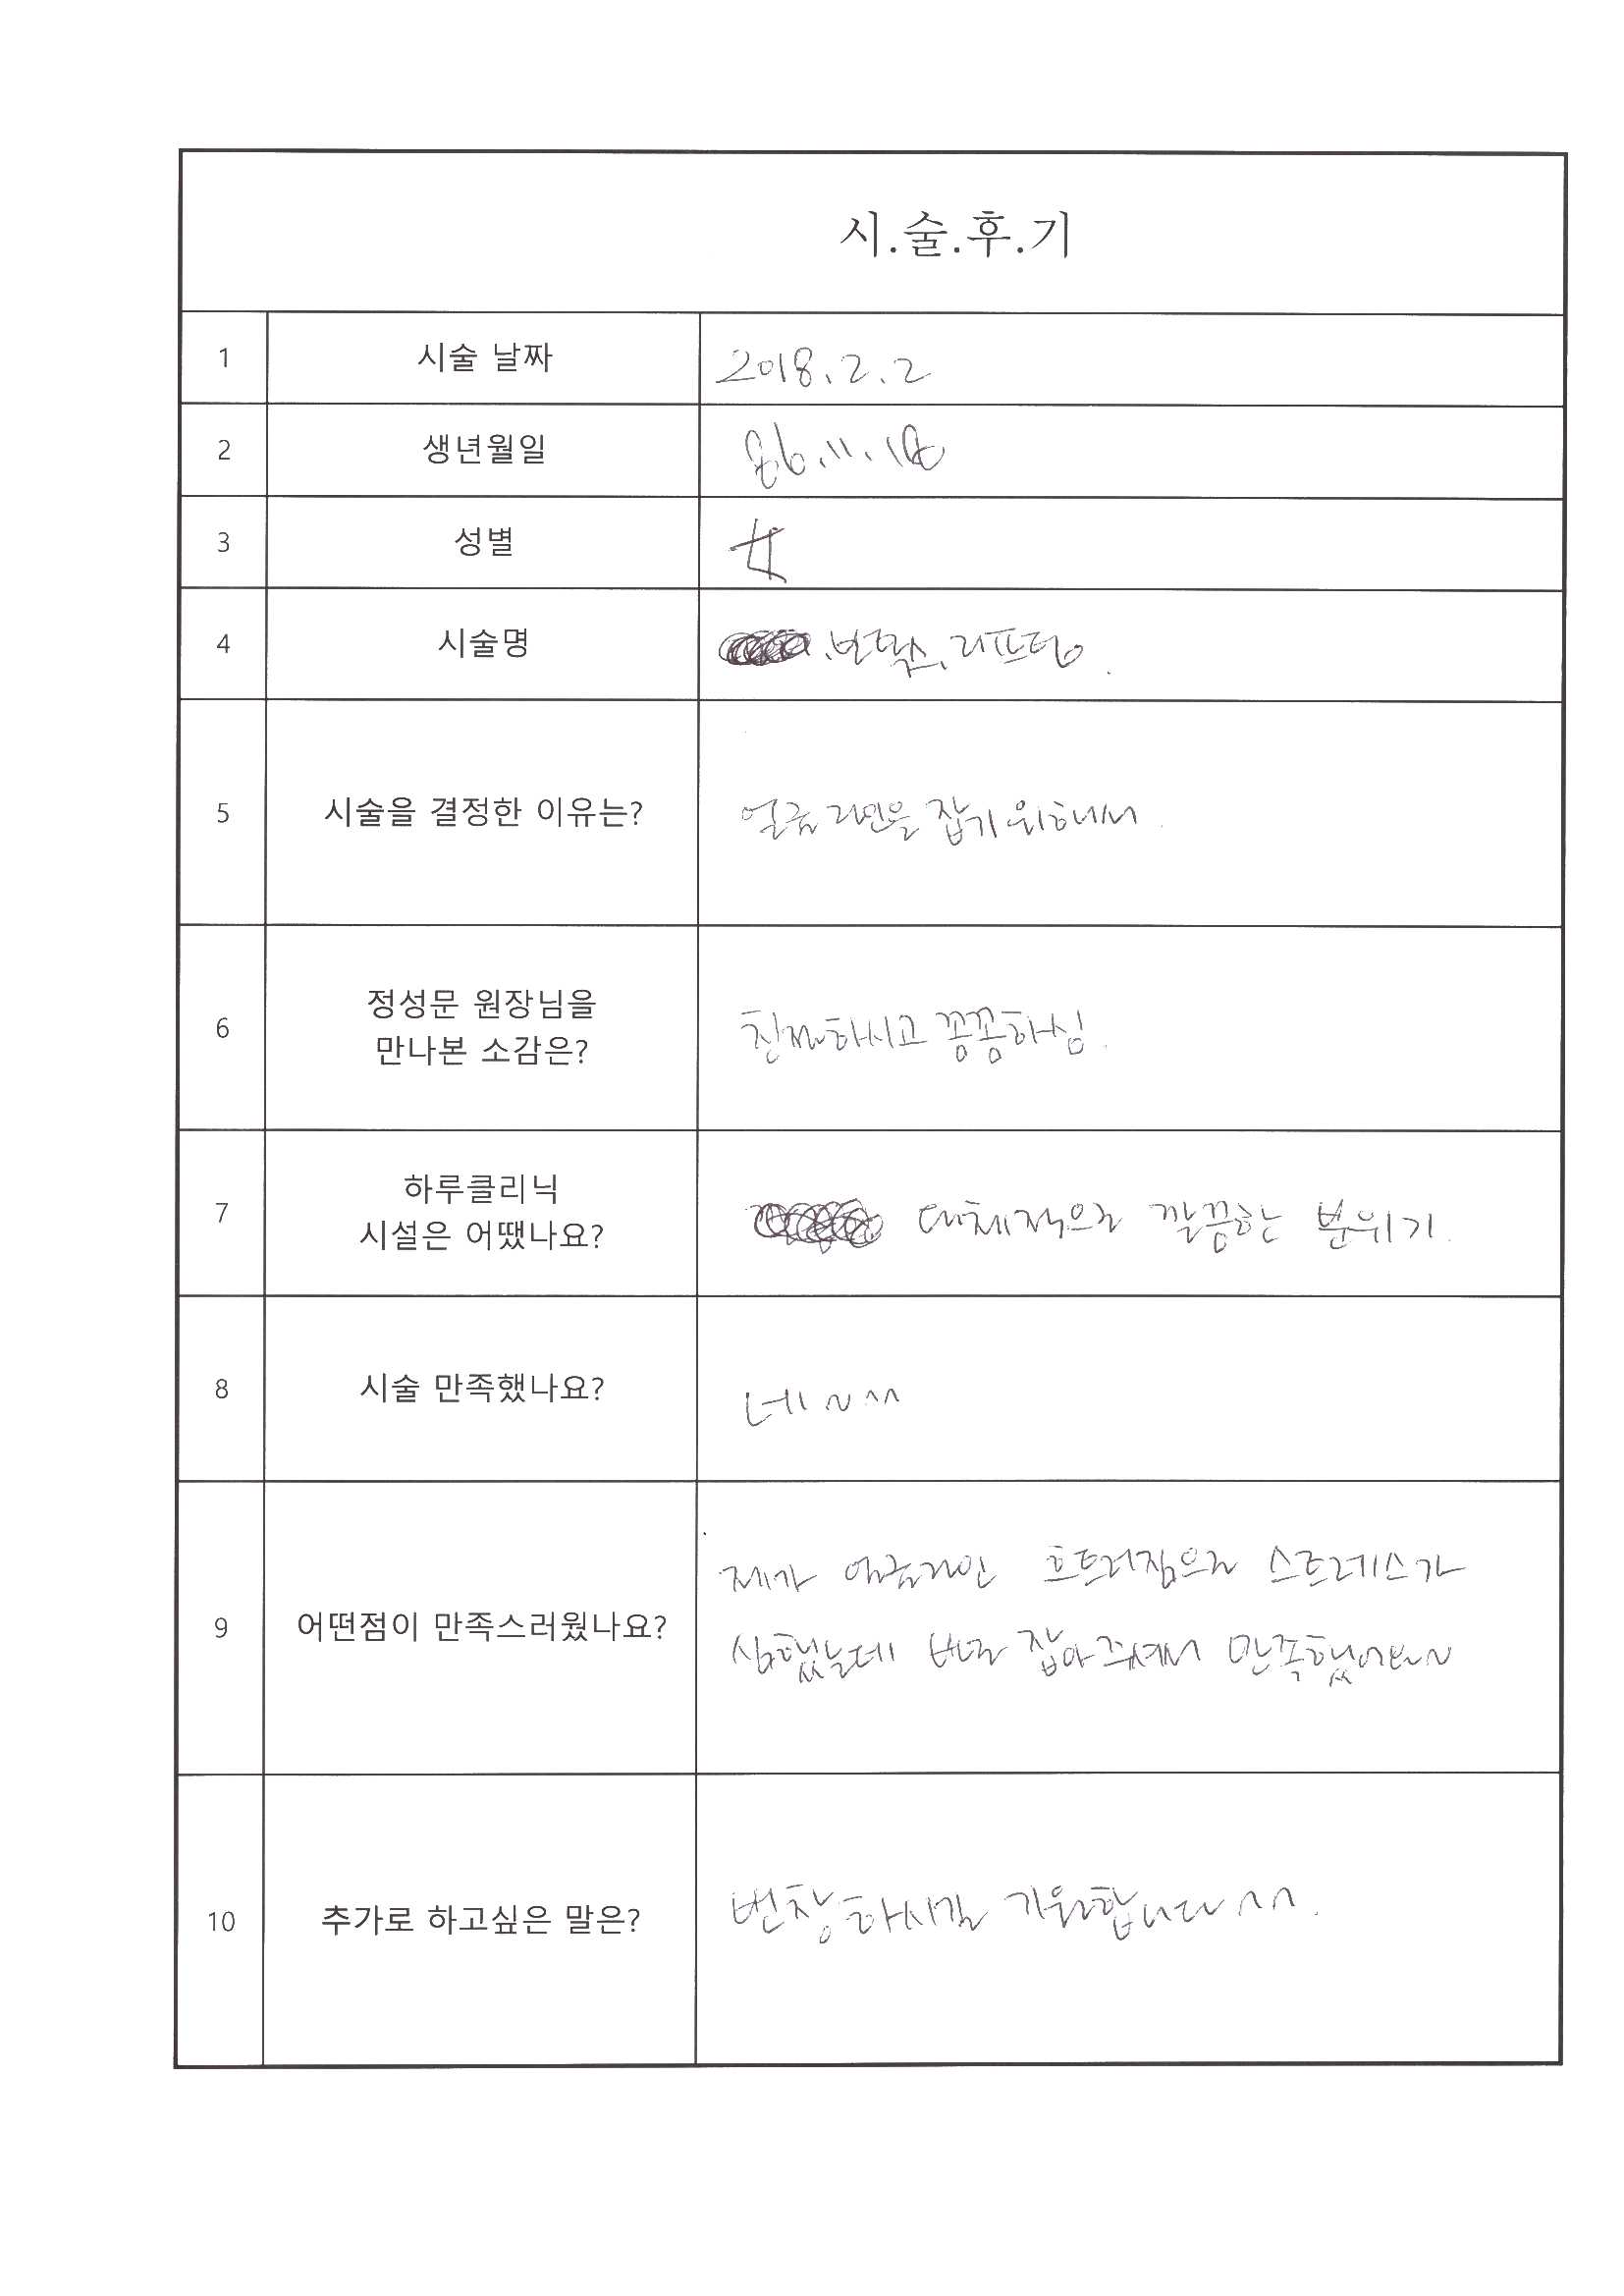 시.술.후.기
1 시술 날짜 2018.2.2
2 생년월일 86.11.18
3 성별 女
4 시술명 .보톡스.리프팅.
5 시술을 결정한 이유는? 얼굴라인을 잡기위해서.
6 정성문 원장님을
만나본 소감은? 친절하시고 꼼꼼하심.
7 하루클리닉
시설은 어땠나요? 대체적으로 깔끔한 분위기.
8 시술 만족했나요? 네~^^
9 어떤점이 만족스러웠나요? 제가 얼굴라인 흐트러짐으로 스트레스가
심했는데 바로 잡아주셔서 만족했어요~
10 추가로 하고싶은 말은? 번창하시길 기원합니다^^.